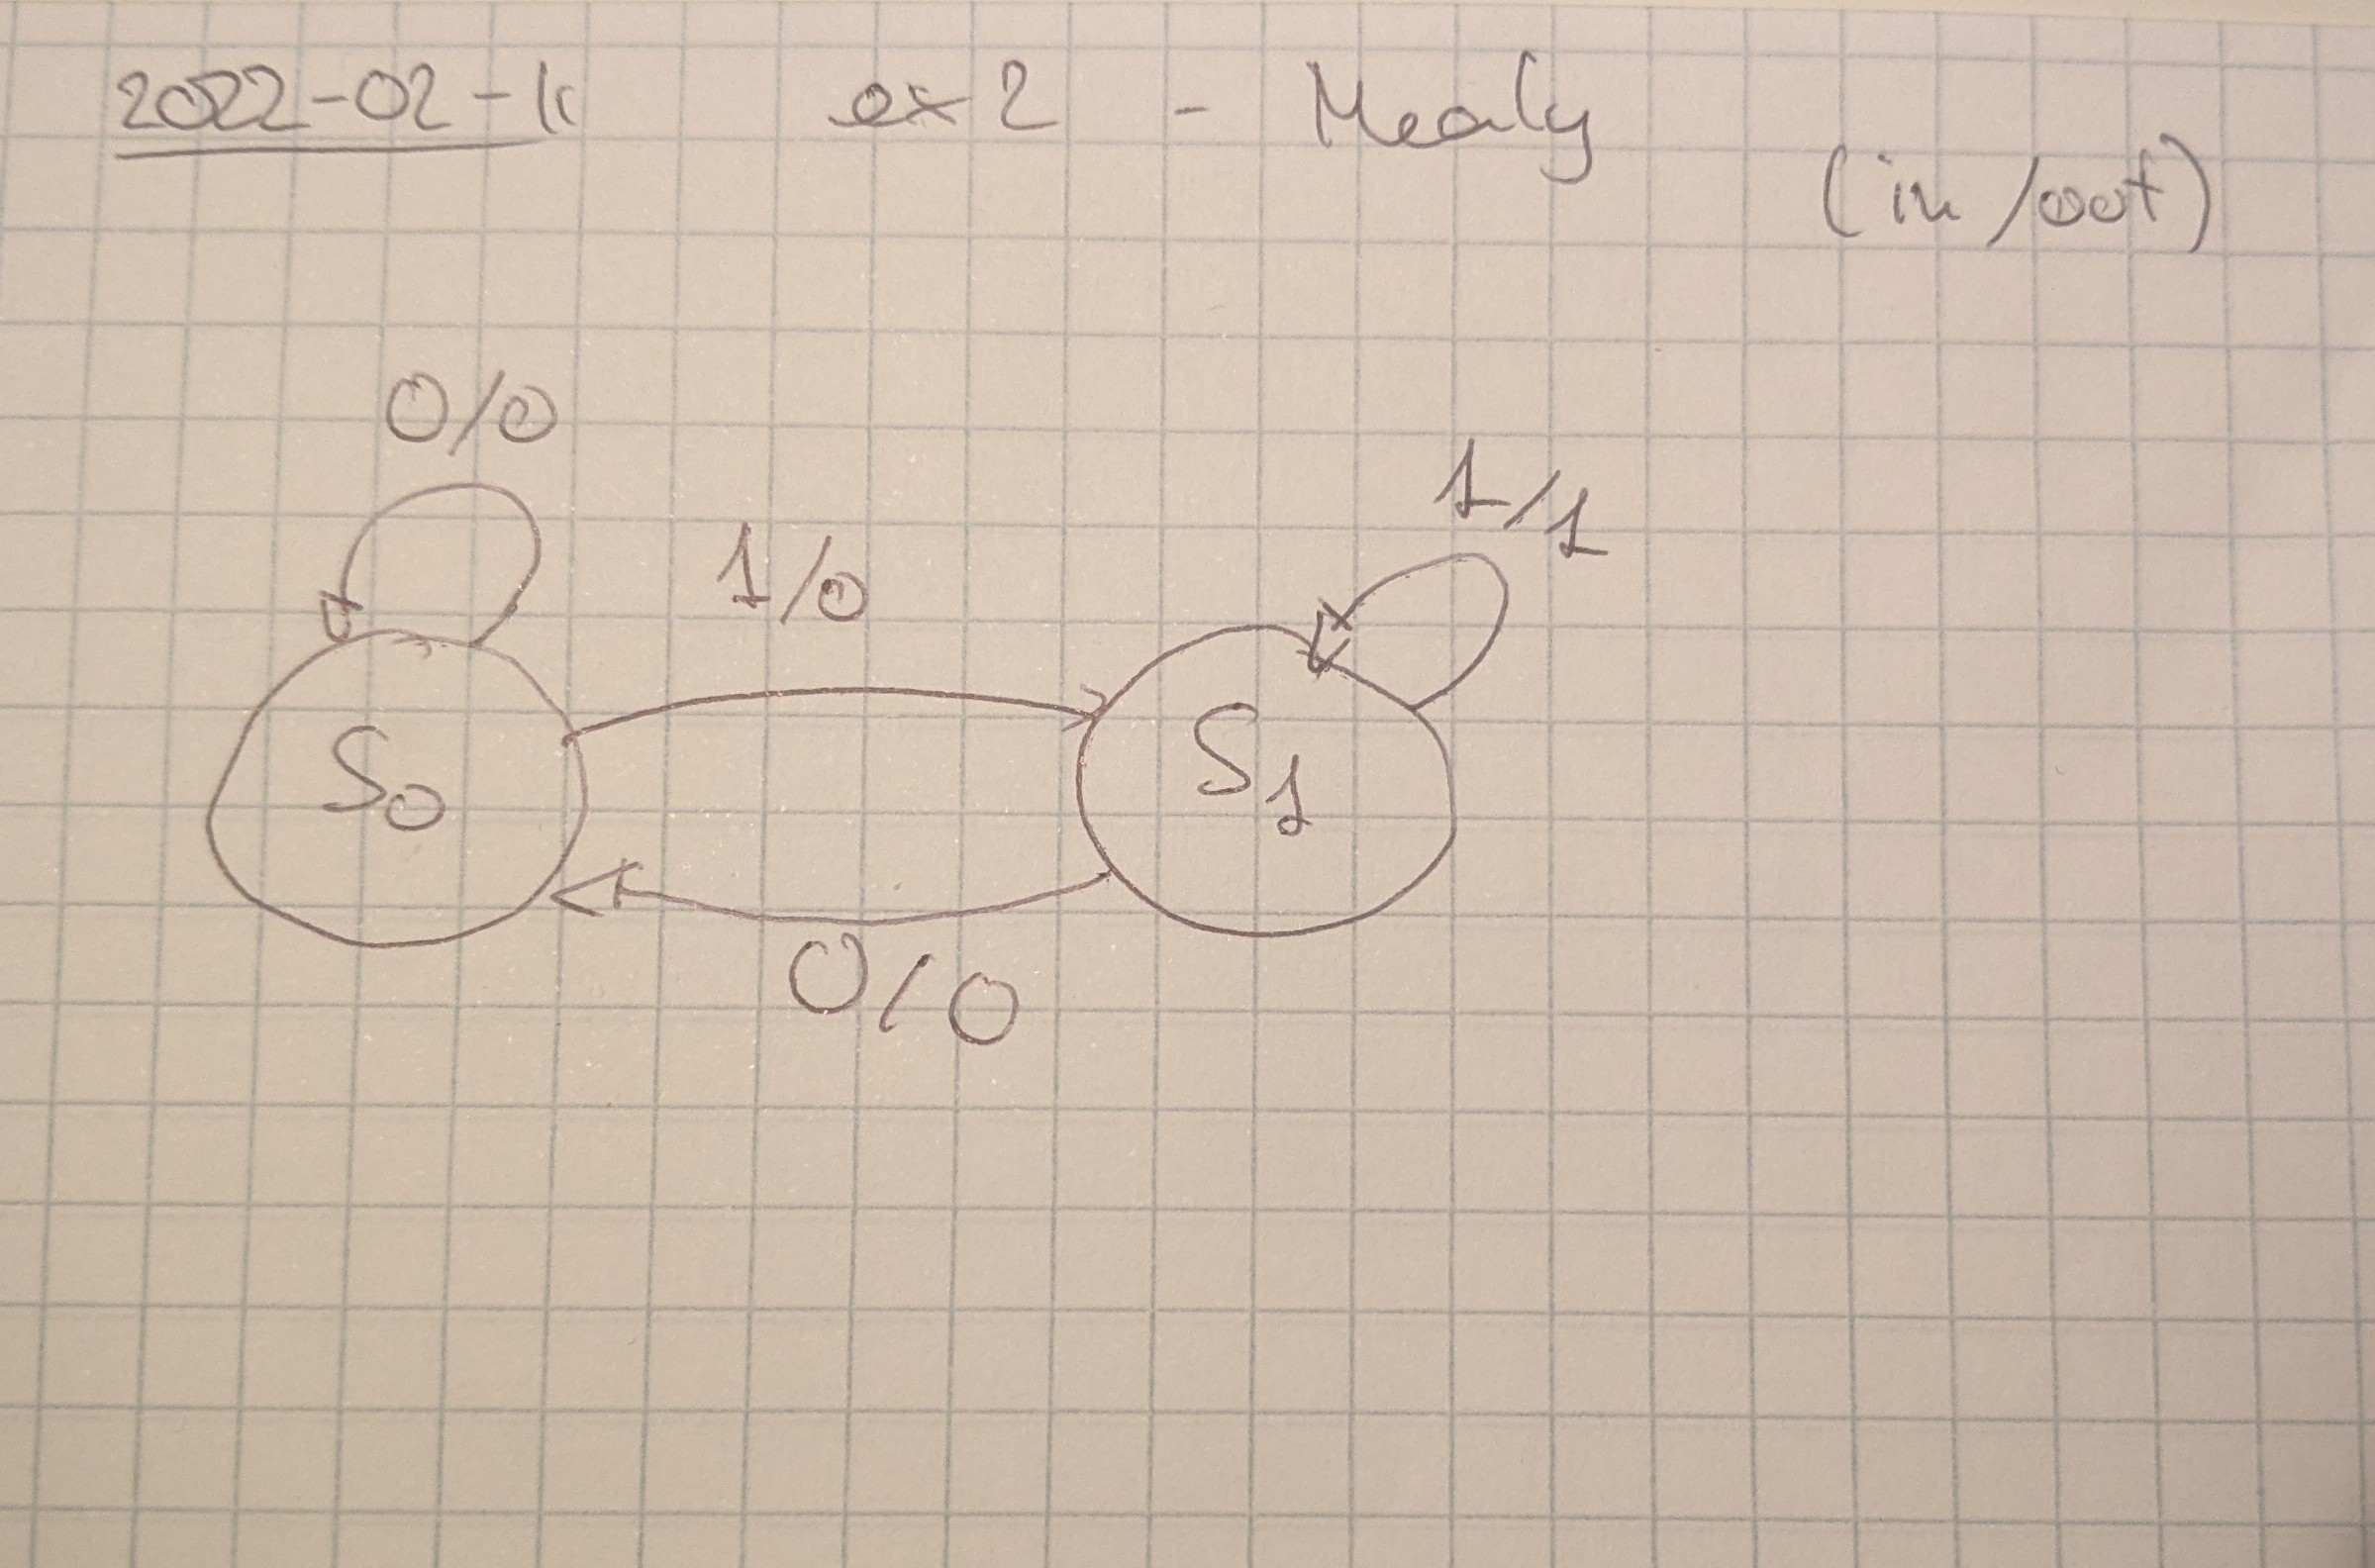 2022-02-11 ex2 - Mealy
(in/out)
0/0
1/1
1/0
S0
S1
0/0